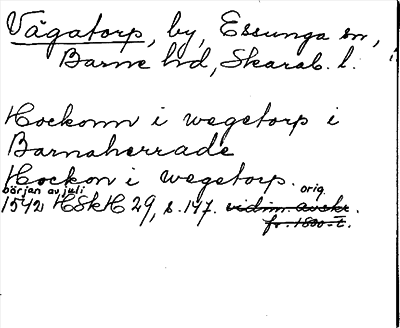 Vägatorp, by, Essunga sn,
Barne hd, Skarab. l.
Hockonn i wegetorp i
Barnaherrade
Hockon i wegetorp.
början av juli orig.
1542 HSkH 29, s. 147. vidim. avskr.
fr. 1800-t.